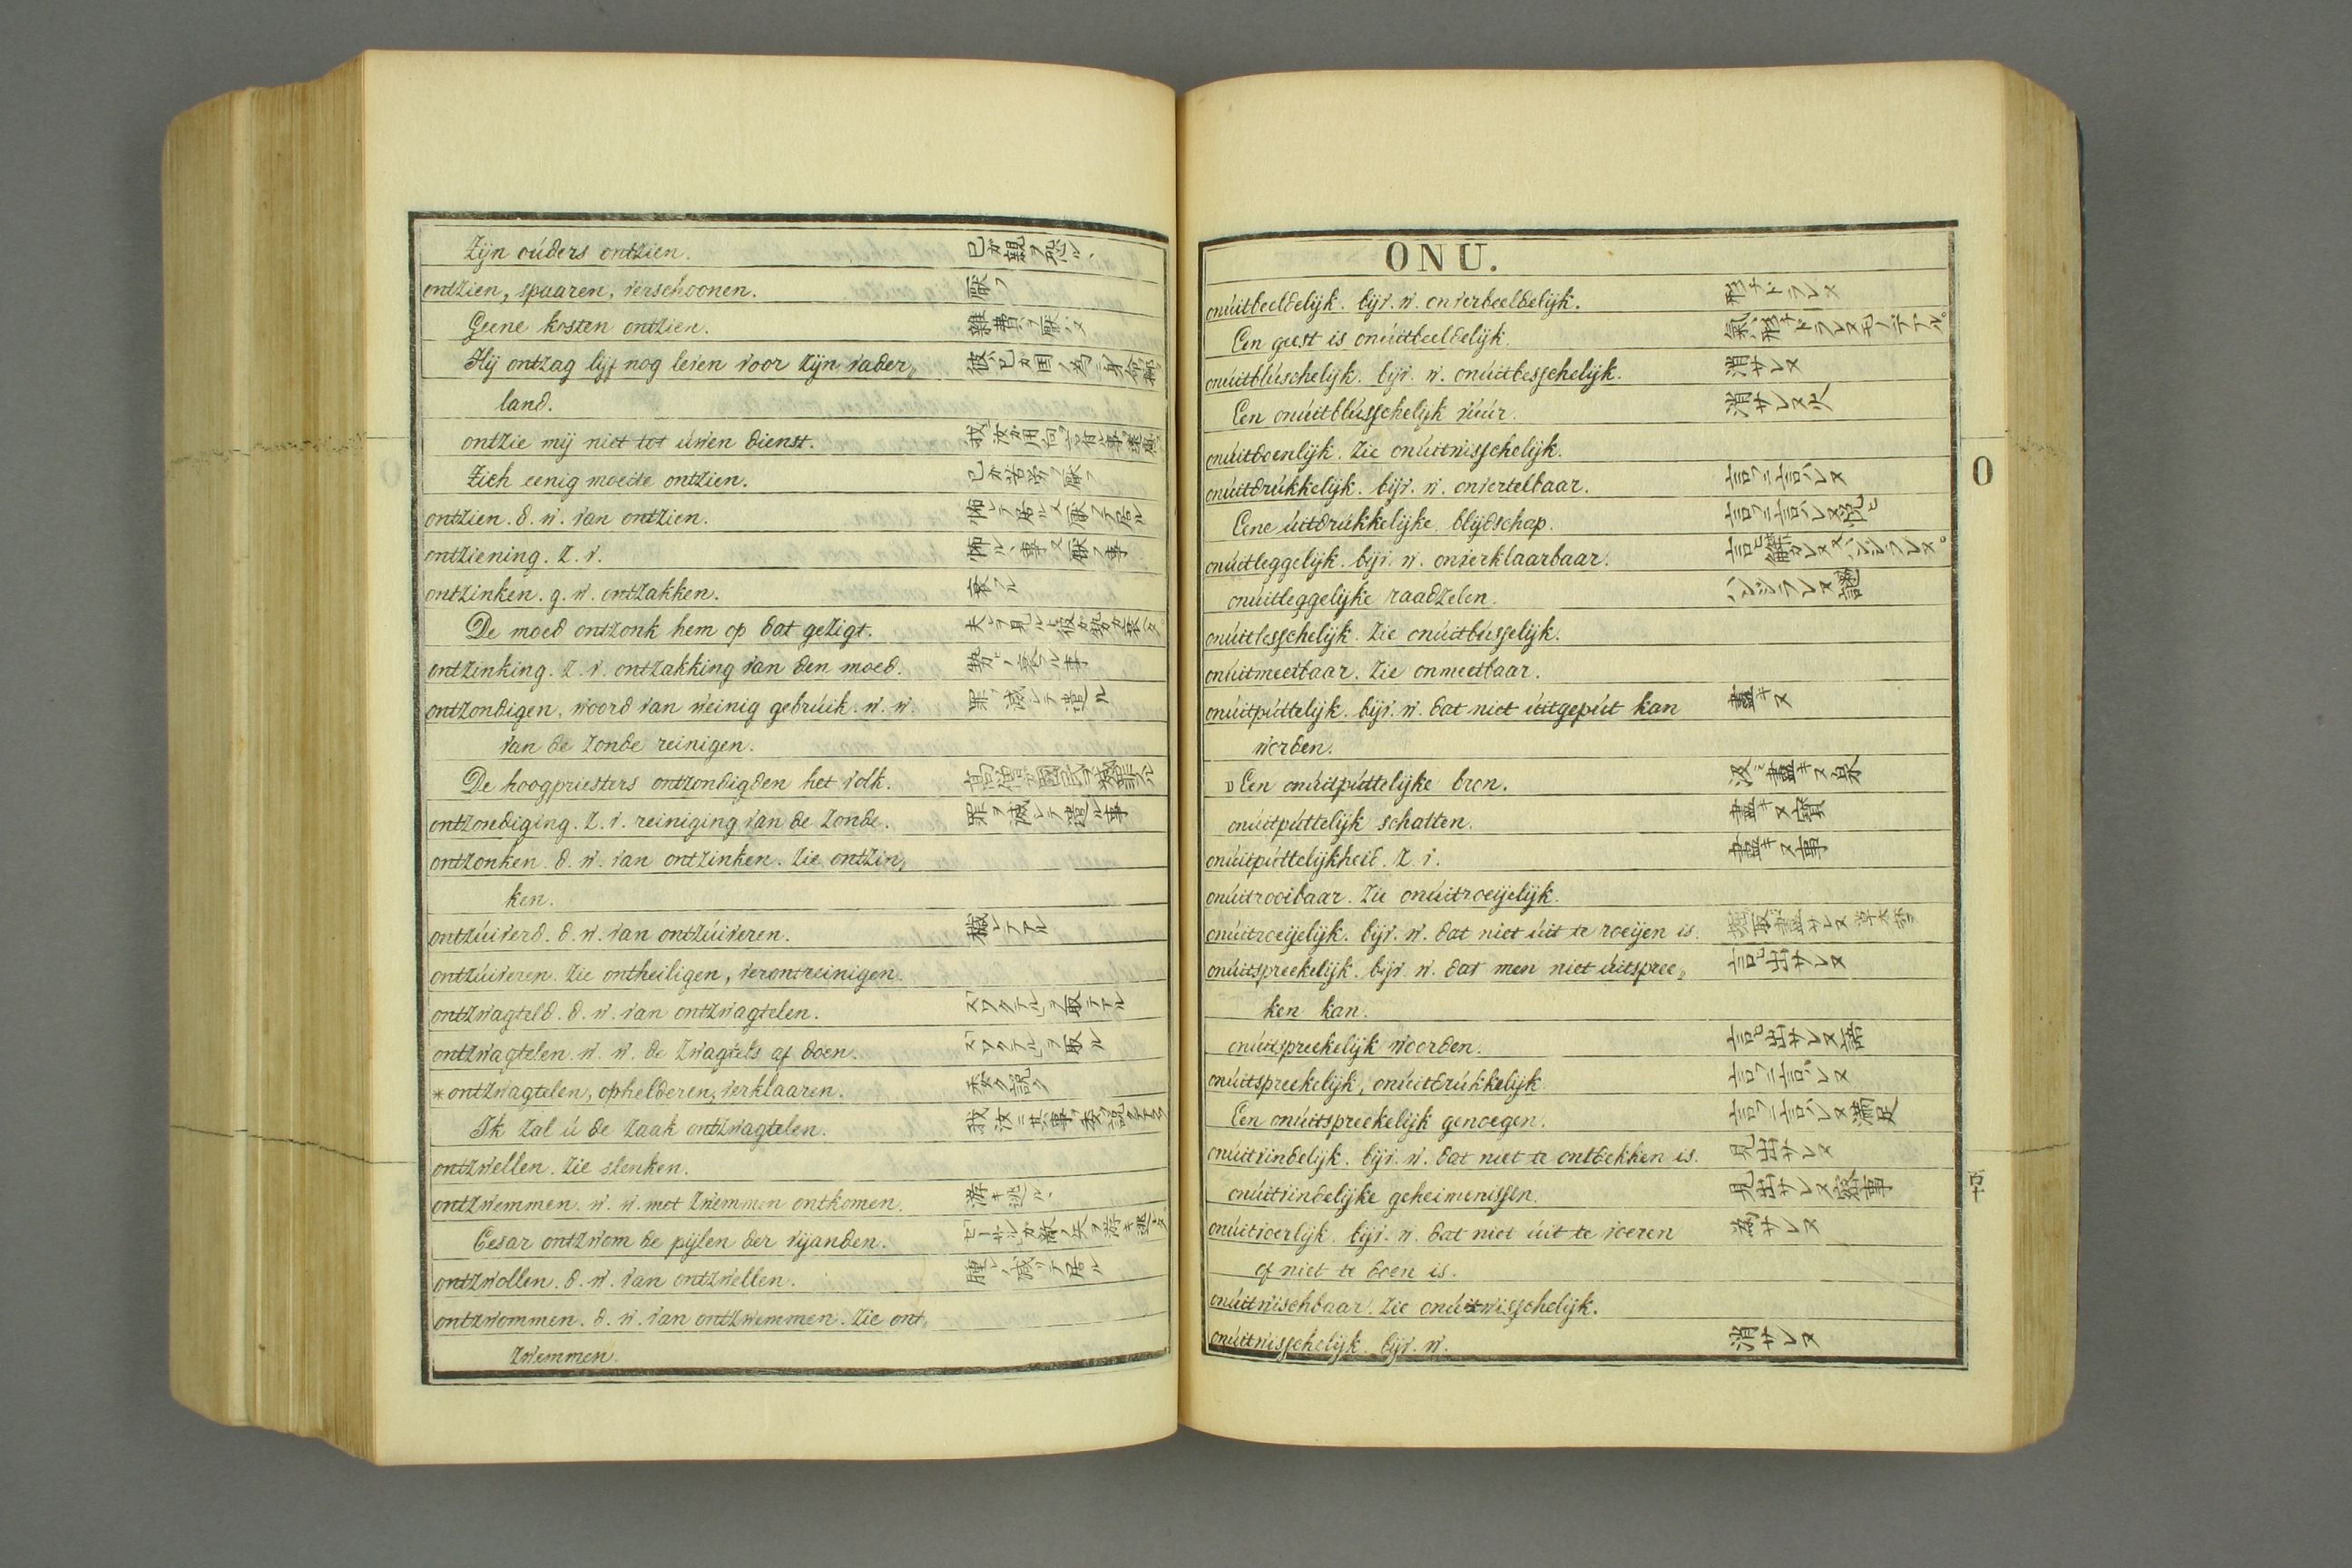 Zijn oúders ontzien. 已ガ親ヲ恐ルヽ
ontzien, spaaren, verschoonen. 厭フ
Geene kosten ontzien. 雜費ヲ厭ハヌ
Hij ontzag lijf nog leven voor zijn vader„
land.
ontzie mij niet tot úwen dienst.
Zich eenig moeite ontzien. 已ガ苦労ヲ厭フ
ontzien. d. w. van ontzien. 怖レテ居ル又厭フテ居ル
ontziening. z. v. 怖ルヽ事又厭フ事
ontzinken. g. w. ontzakken. 衰フル
De moed ontzonk hem op dat gezigt.
ontzinking. z. v. ontzakking van den moed. 勢ヒノ衰ヘル事
ontzondigen, woord van weinig gebrúik. w. w. 罪ヲ滅シテ遣ル
van de zonde reinigen.
De hoogpriesters ontzondigden het volk.
ontzondiging. z. v. reiniging van de zonde. 罪ヲ滅シテ遣ル事
ontzonken. d. w. van ontzinken. zie ontzin„
ken.
ontzúiverd. d. w. van ontzúiveren. 穢レテアル
ontzúiveren. zie ontheiligen, verontreinigen.
ontzwagteld. d. w. van ontzwagtelen. ズワクテルヲ取テアル
ontzwagtelen. w. w. de zwagtels af doen. ズワクテルヲ取ル
* ontzwagtelen, ophelderen, verklaaren. 委ク説ク
Ik zal ú de zaak ontzwagtelen.
ontzwellen. zie slenken.
ontzwemmen. w. w. met zwemmen ontkomen. 游キ逃ルヽ
Cesar ontzwom de pijlen der vijanden.
ontzwollen. d. w. van ontzwellen. 腫レノ減ツテ居ル
ontzwommen. d. w. van ontzwemmen. zie ont„
zwemmen.
ONU.
onúitbeeldelijk. bijv. w. onverbeeldelijk. 形チドラレヌ
Een geest is onúitbeeldelijk. 氣ハ形チドラレヌモノデアル。
onúitblúschelijk. bijv. w. onúitbesschelijk. 消サレヌ
Een onúitblússchelijk vúúr. 消サレヌ火
onúitdoenlijk. zie onúitwisschelijk.
onúitdrúkkelijk. bijv. w. onvertelbaar. 言フニ言ハレヌ
Eene úitdrúkkelijke blijdschap. 言フニ言ハレヌ悦ヒ
onúitleggelijk. bijv. w. onverklaarbaar.
onúitleggelijke raadzelen. ハンジラレヌ謎
onúitlesschelijk. zie onúitblússelijk.
onúitmeetbaar. zie onmeetbaar.
onúitpúttelijk. bijv. w. dat niet úitgepút kan 盡キヌ
worden.
D Een onúitpúttelijke bron. 汲ミ盡キヌ泉
onúitpúttelijk schatten. 盡キヌ寳
onúitpúttelijkheid. z. v. 盡キヌ事
onúitrooibaar. zie onúitroeijelijk.
onúitroeijelijk. bijv. w. dat niet úit te roeijen is.
onúitspreekelijk. bijv. w. dat men niet úitspree„ 言ヒ出サレヌ
ken kan.
onúitspreekelijk woorden. 言ヒ出サレヌ語
onúitspreekelijk, onúitdrúkkelijk 言フニ言ハレヌ
Een onúitspreekelijk genoegen. 言フニ言ハレヌ満足
onúitvindelijk. bijv. w. dat niet te ontdekken is. 見出サレヌ
onúitvindelijke geheimenissen. 見出サレヌ密事
onúitvoerlijk. bijv. w. dat niet úit te voeren 為サレヌ
of niet te doen is.
onúitwischbaar. zie onúitwisschelijk.
onúitwisschelijk. bijv. w. 消サレヌ
O